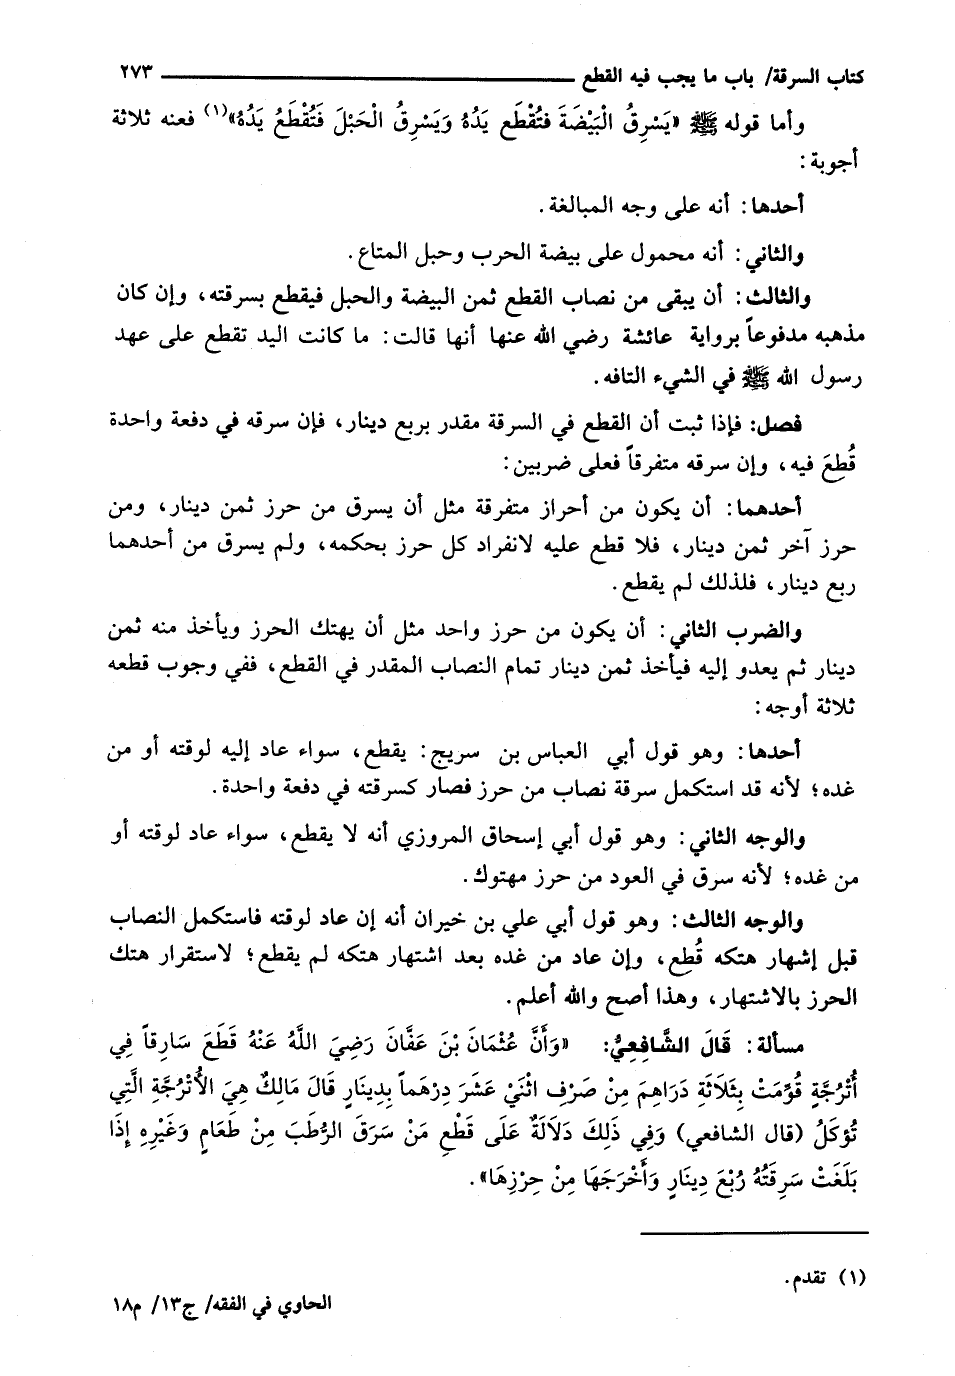 كتاب السرقة/ باب ما يجب فيه القطع ٢٧٣
وأما قوله ﷺ «يَسْرِقُ الْبَيْضَةَ فتُقْطَع يَدُهُ وَيَسْرِقُ الْحَبْلَ فَتُقْطَعُ يَدُهُ»(١) فعنه ثلاثة
أجوبة:
أحدها: أنه على وجه المبالغة.
والثاني: أنه محمول على بيضة الحرب وحبل المتاع.
والثالث: أن يبقى من نصاب القطع ثمن البيضة والحبل فيقطع بسرقته، وإن كان
مذهبه مدفوعاً برواية عائشة رضي الله عنها أنها قالت: ما كانت اليد تقطع على عهد
رسول الله ﷺ في الشيء التافه.
فصل: فإذا ثبت أن القطع في السرقة مقدر بربع دينار، فإن سرقه في دفعة واحدة
قُطِعَ فيه، وإن سرقه متفرقاً فعلى ضربين:
أحدهما: أن يكون من أحراز متفرقة مثل أن يسرق من حرز ثمن دينار، ومن
حرز آخر ثمن دينار، فلا قطع عليه لانفراد كل حرز بحكمه، ولم يسرق من أحدهما
ربع دينار، فلذلك لم يقطع.
والضرب الثاني: أن يكون من حرز واحد مثل أن يهتك الحرز ويأخذ منه ثمن
دينار ثم يعدو إليه فيأخذ ثمن دينار تمام النصاب المقدر في القطع، ففي وجوب قطعه
ثلاثة أوجه:
أحدها: وهو قول أبي العباس بن سريج: يقطع، سواء عاد إليه لوقته أو من
غده؛ لأنه قد استكمل سرقة نصاب من حرز فصار كسرقته في دفعة واحدة.
والوجه الثاني: وهو قول أبي إسحاق المروزي أنه لا يقطع، سواء عاد لوقته أو
من غده؛ لأنه سرق في العود من حرز مهتوك.
والوجه الثالث: وهو قول أبي علي بن خيران أنه إن عاد لوقته فاستكمل النصاب
قبل إشهار هتكه قُطِع، وإن عاد من غده بعد اشتهار هتكه لم يقطع؛ لاستقرار هتك
الحرز بالاشتهار، وهذا أصح والله أعلم.
مسألة: قَالَ الشَّافِعِيُّ: «وَأَنَّ عُثْمَانَ بْنَ عَفَّانَ رَضِيَ اللَّهُ عَنْهُ قَطَعَ سَارِقاً فِي
أُتْرُجَّةٍ قُوِّمَتْ بِثَلَاثَةِ دَرَاهِمَ مِنْ صَرْفِ اثْنَيْ عَشَرَ دِرْهَماً بِدِينَارٍ قَالَ مَالِكٌ هِيَ الأُتْرُجَّةِ الَّتِي
تُؤكَلُ (قال الشافعي) وَفِي ذَلِكَ دَلَالَةٌ عَلَى قَطْعِ مَنْ سَرَقَ الرُّطَبَ مِنْ طَعَامٍ وَغَيْرِهِ إِذَا
بَلَغَتْ سَرِقَتُهُ رُبْعَ دِينَارٍ وَأَخْرَجَهَا مِنْ حِرْزِهَا».
(١) تقدم.
الحاوي في الفقه/ ج١٣/ م١٨